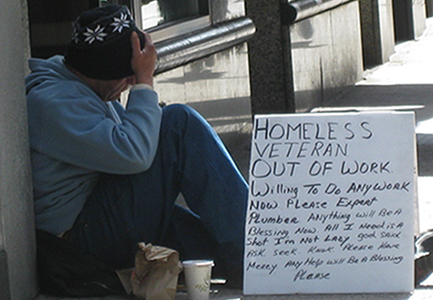 HOMELESS
VETERAN
OUT OF WORK.
WILLING TO DO ANY WORK
NOW PLEASE EXPERT
PLUMBER ANYTHING WILL BE A
BLESSING NOW. ALL I NEED IS A
SHOT I'M NOT LAZY god SAID
ASK. SEEK. KNOK. PLEASE HAVE
MERCY ANY HELP WILL BE A BLESSING
PLEASE